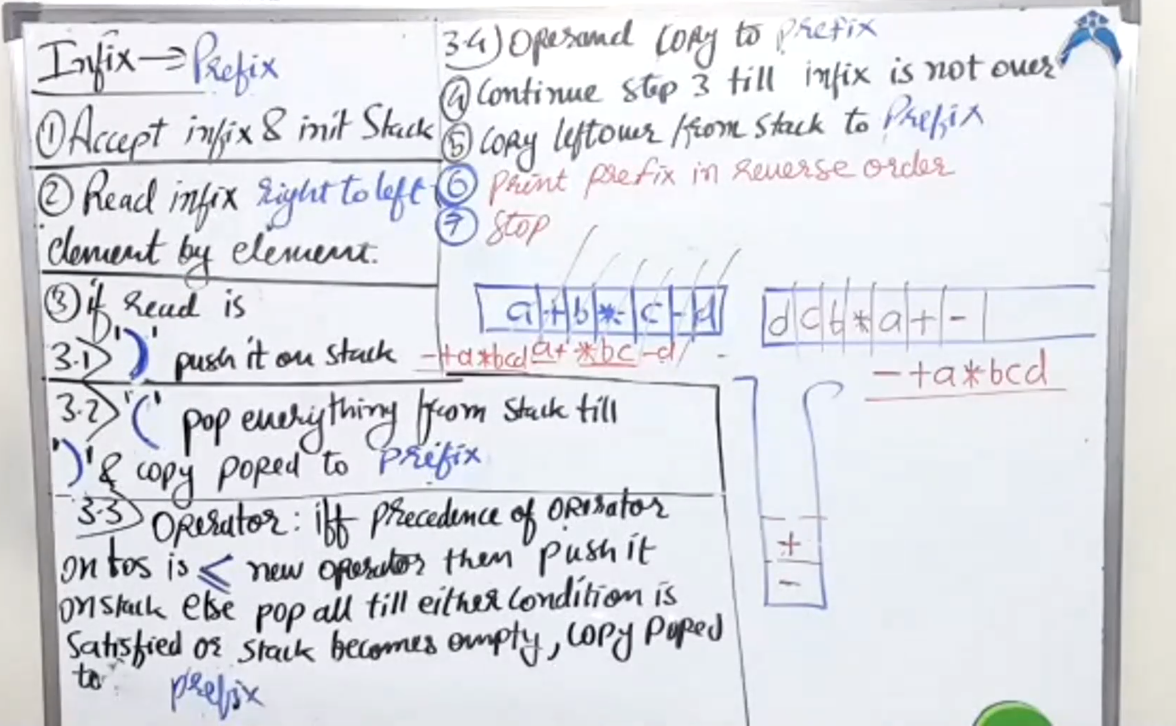 Infix → Prefix
① Accept infix & init Stack
② Read infix right to left
element by element.
③ if read is
3.1> ')' push it on stack
3.2> '(' pop everything from stack till
')' & copy poped to prefix
3.3> Operator: iff precedence of operator
on tos is ≤ new operator then push it
on stack else pop all till either condition is
satisfied or stack becomes empty, copy poped
to prefix
3.4) Operand copy to prefix
④ Continue step 3 till infix is not over
⑤ copy leftover from stack to Prefix
⑥ print prefix in reverse order
⑦ Stop
a + b * c - d
-+a*bcd a+ *bc -d
d c b * a + -
-+a*bcd
+
-